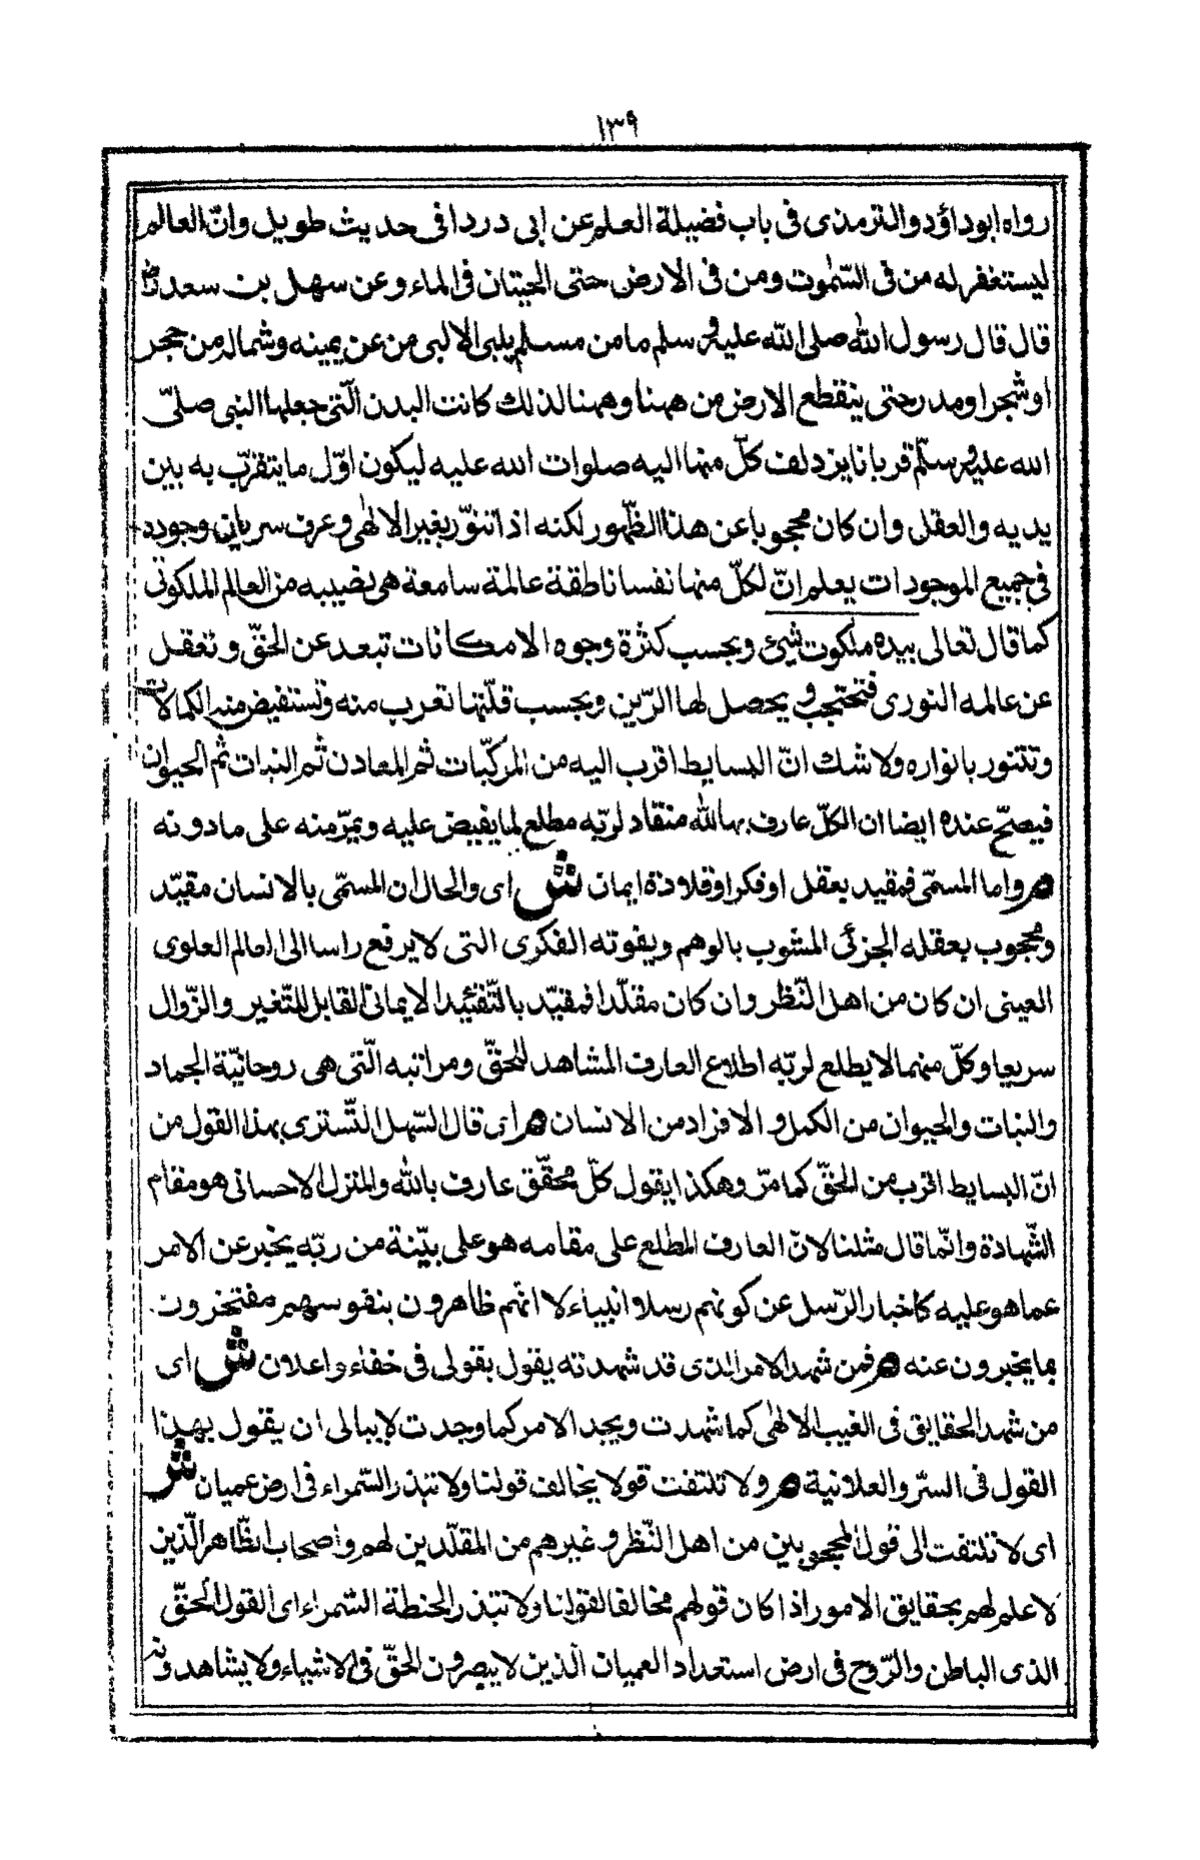 ١٣٩
رواه ابوداؤد والترمذى فى باب فضيلة العلم عن ابى دردا فى حديث طويل وانّ العالم
ليستغفر له من فى السّمٰوت ومن فى الارض حتى الحيتان فى الماء وعن سهل بن سعد
قال قال رسول اللّٰه صلى اللّٰه عليه وسلم ما من مسلم يلبى الا لبى من عن يمينه وشماله من حجر
او شجر او مدر حتى ينقطع الارض من ههنا وههنا لذلك كانت البدن الّتى جعلها النبى صلىّ
الله عليه وسلّم قربانا يزدلف كلّ منها اليه صلوات الله عليه ليكون اوّل ما يتقرّب به بين
يديه والعقل وان كان محجوبا عن هذا الظّهور لكنه اذا تنوّر بغير الالٰهى وعرف سريان وجوده
فى جميع الموجودات يعلم انّ لكلّ منها نفسا ناطقة عالمة سامعة هى نصيبه من العالم الملكوتى
كما قال تعالى بيده ملكوت شيئ وبحسب كثرة وجوه الامكانات تبعد عن الحقّ وتعقل
عن عالمه النورى فتحتجب و يحصل لها الرّين وبحسب قلّتها تعرب منه وتستفيض منه الكمالات
وتتنور بانواره ولا شك انّ البسايط اقرب اليه من المركّبات ثم المعادن ثم النبات ثم الحيوان
فيصحّ عنده ايضا ان الكلّ عارف باللّٰه منقاد لربّه مطلع لما يفيض عليه ويمرّ منه على ما دونه
م واما المسمّى فمقيد بعقل او فكر او قلادة ايمان ش اى والحال ان المسمّى بالانسان مقيّد
ومحجوب بعقله الجزئى المشوب بالوهم وبقوته الفكرى التى لا يرفع راسا الى العالم العلوى
العينى ان كان من اهل النّظر وان كان مقلّدا فمقيّد بالتّقييد الايمانى القابل للتّغير والزّوال
سريعا وكلّ منهما لا يطلع لربّه اطلاع العارف المشاهد للحقّ ومراتبه الّتى هى روحانيّة الجماد
والنبات والحيوان من الكمل و الافراد من الانسان م اى قال السّهل التّسترى بهذا القول من
انّ البسايط اقرب من الحقّ كما مرّ وهكذا يقول كلّ محقّق عارف باللّٰه والمنزل الاحسانى هو مقام
الشّهادة وانّما قال مثلنا لانّ العارف المطلع على مقامه هو على بيّنة من ربّه يخبر عن الامر
عما هو عليه كاخبار الرّسل عن كونهم رسلا وانبياء لا انّهم ظاهرون بنفوسهم مفتخرون
بما يخبرون عنه م فمن شهد الامر الذى قد شهدته يقول بقولى فى خفاء واعلان ش اى
من شهد الحقايق فى الغيب الالٰهى كما شهدت ويجد الامر كما وجدت لا يبالى ان يقول بهذا
القول فى السّر والعلانية م ولا تلتفت قولا يخالف قولنا ولا تبذر السّمراء فى ارض عميان ش
اى لا تلتفت الى قول المحجوبين من اهل النّظر وغيرهم من المقلّدين لهم واصحاب الظّاهر الّذين
لا علم لهم بحقايق الامور اذا كان قولهم مخالفا لقولنا ولا تبذر الحنطة السّمراء اى القول الحقّ
الذى الباطن والرّوح فى ارض استعداد العميان الّذين لا يبصرون الحقّ فى الاشياء ولا يشاهدونه